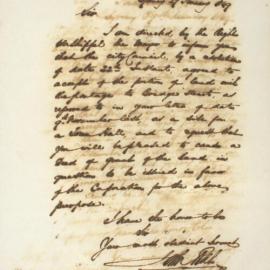 Sir
I am directed, by the Right
the Mayor to inform you
that the City Council, by a resolution
of date 22d Instant, agreed to
accept of the portion of land with
the frontage to Bridge Street, as
referred to in your letter of date
November last, as a site for
a Town Hall, and to request that
you will be pleased to cause a
Deed of grant of the land in
question to be issued in favor
of the Corporation for the above
purpose.
I have the honor to be
Sir
Your most obedient Servt